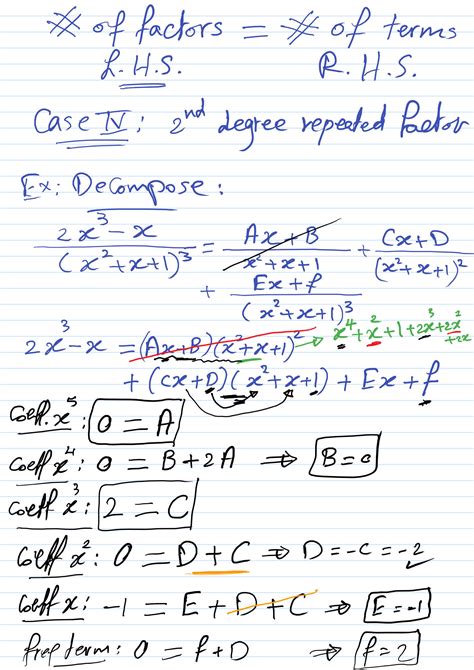 # of factors = # of terms
L.H.S. R.H.S.
Case IV: 2nd degree repeated factor
Ex: Decompose:
(2x³ - x)/(x²+x+1)³ = (Ax+B)/(x²+x+1) + (Cx+D)/(x²+x+1)²
+ (Ex+f)/(x²+x+1)³
2x³-x = (Ax+B)(x²+x+1)² → x⁴+x²+1+2x³+2x²+2x
+ (Cx+D)(x²+x+1) + Ex+f
Coeff. x⁵: 0 = A
Coeff x⁴: 0 = B+2A ⇒ B=0
Coeff x³: 2 = C
Coeff x²: 0 = D+C ⇒ D=-C=-2
Coeff x: -1 = E+D+C ⇒ E=-1
free term: 0 = f+D ⇒ f=2